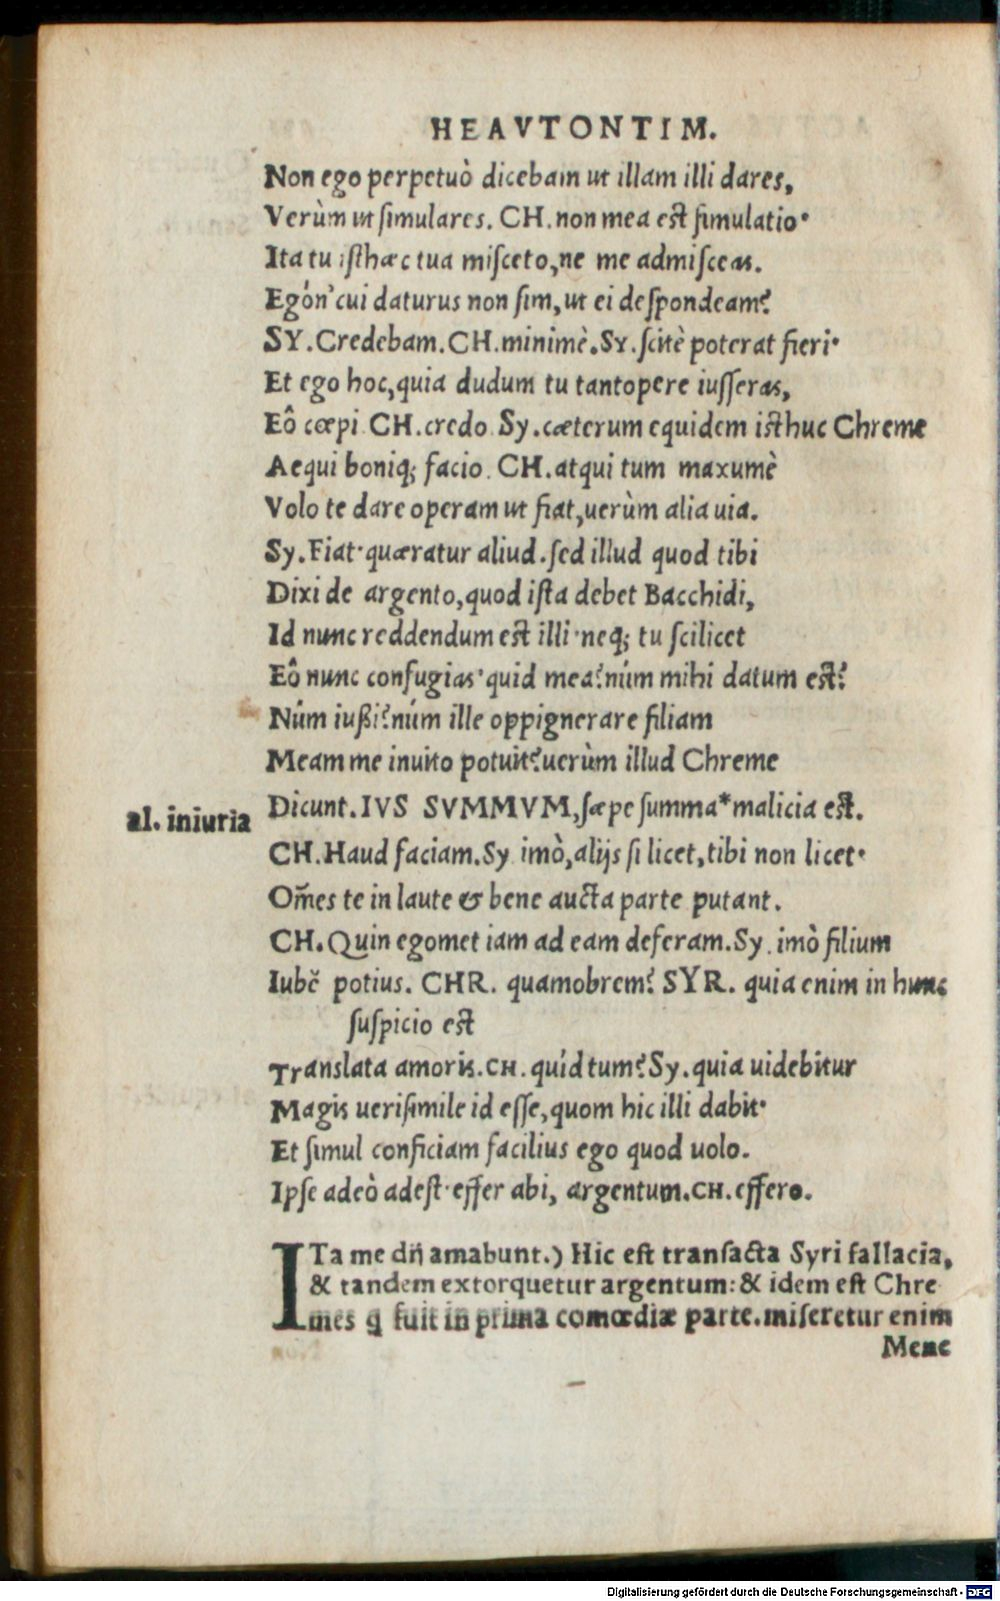 HEAVTONTIM.
Non ego perpetuò dicebam ut illam illi dares,
Verùm ut ſimulares. CH. non mea eſt ſimulatio·
Ita tu iſthæc tua miſceto, ne me admiſceas.
Egón' cui daturus non ſim, ut ei deſpondeam?
SY. Credebam. CH. minimè. SY. ſcitè poterat fieri·
Et ego hoc, quia dudum tu tantopere iuſſeras,
Eô cœpi CH. credo Sy. cæterum equidem iſthuc Chreme
Aequi boniq; facio. CH. atqui tum maxumè
Volo te dare operam ut fiat, uerùm alia uia.
Sy. Fiat· quæratur aliud. ſed illud quod tibi
Dixi de argento, quod iſta debet Bacchidi,
Id nunc reddendum eſt illi· neq; tu ſcilicet
Eô nunc confugias· quid mea? núm mihi datum eſt?
Núm iußi? núm ille oppignerare filiam
Meam me inuito potuit? uerùm illud Chreme
al. iniuria
Dicunt. IVS SVMMVM, ſæpe ſumma* malicia eſt.
CH. Haud faciam. Sy imò, alijs ſi licet, tibi non licet·
Om̃es te in laute & bene aucta parte putant.
CH. Quin egomet iam ad eam deferam. Sy. imò filium
Iubẽ potius. CHR. quamobrem? SYR. quia enim in hunc
ſuſpicio eſt
Translata amoris. CH. quid tum? Sy. quia uidebitur
Magis ueriſimile id eſſe, quom hic illi dabit·
Et ſimul conficiam facilius ego quod uolo.
Ipſe adeò adeſt· effer abi, argentum. CH. effero.
ITa me dñ amabunt.) Hic eſt tranſacta Syri fallacia,
& tandem extorquetur argentum: & idem eſt Chre
mes q fuit in prima comœdiæ parte. miſeretur enim
Mene
Digitalisierung gefördert durch die Deutsche Forschungsgemeinschaft - DFG